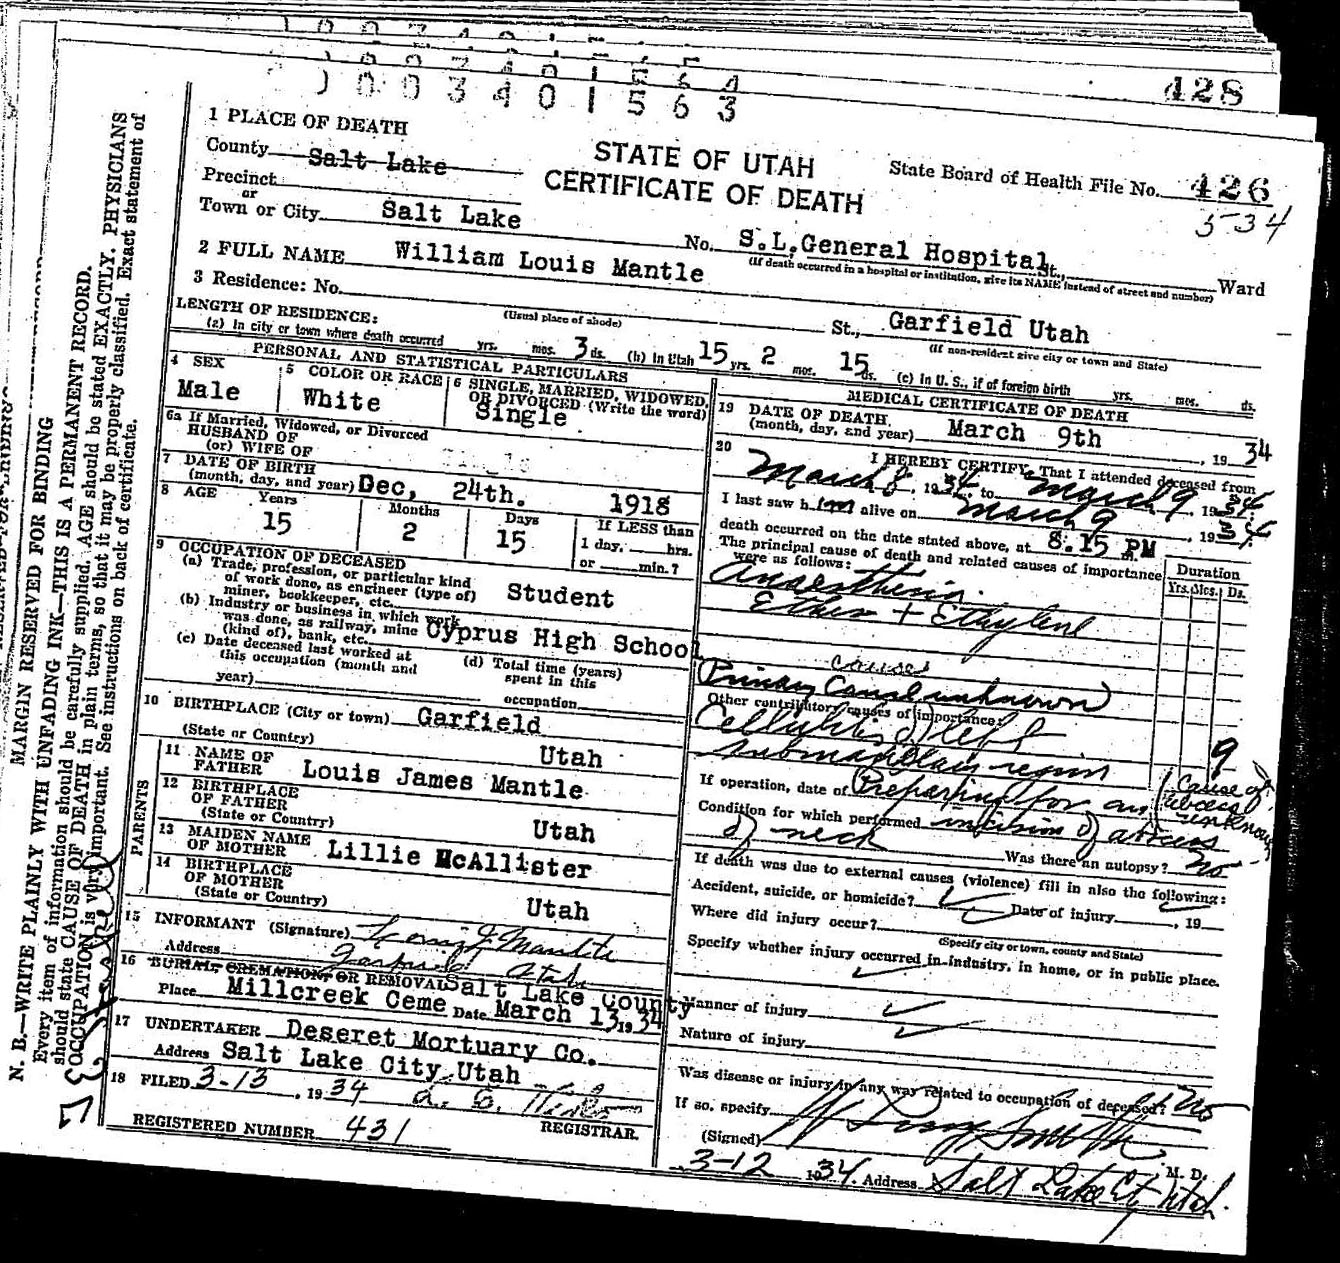 428
0 0 3 4 0 1 5 6 3
1 PLACE OF DEATH
County Salt Lake
STATE OF UTAH
CERTIFICATE OF DEATH
State Board of Health File No. 426
5-34
Precinct
or
Town or City Salt Lake
No. S.L.General Hospital St., Ward
(If death occurred in a hospital or institution, give its NAME instead of street and number)
2 FULL NAME William Louis Mantle
3 Residence: No. St., Garfield Utah
(Usual place of abode)
(If non-resident give city or town and State)
LENGTH OF RESIDENCE:
(a) In city or town where death occurred yrs. mos. 3 ds. (b) In Utah 15 yrs. 2 mos. 15 ds. (c) In U. S., if of foreign birth yrs. mos. ds.
PERSONAL AND STATISTICAL PARTICULARS
4 SEX
Male
5 COLOR OR RACE
White
6 SINGLE, MARRIED, WIDOWED, OR DIVORCED (Write the word)
Single
6a If Married, Widowed, or Divorced
HUSBAND OF
(or) WIFE OF
7 DATE OF BIRTH
(month, day, and year) Dec, 24th. 1918
8 AGE Years Months Days If LESS than
15 2 15 1 day, hrs.
or min.?
9 OCCUPATION OF DECEASED
(a) Trade, profession, or particular kind
of work done, as engineer (type of)
miner, bookkeeper, etc. Student
(b) Industry or business in which work
was done, as railway, mine
(kind of), bank, etc. Cyprus High School
(c) Date deceased last worked at
this occupation (month and
year)
(d) Total time (years)
spent in this
occupation
10 BIRTHPLACE (City or town) Garfield
(State or Country) Utah
PARENTS
11 NAME OF
FATHER Louis James Mantle
12 BIRTHPLACE
OF FATHER
(State or Country) Utah
13 MAIDEN NAME
OF MOTHER Lillie McAllister
14 BIRTHPLACE
OF MOTHER
(State or Country) Utah
15 INFORMANT (Signature) Louis J Mantle
Address Garfield Utah
16 BURIAL, CREMATION, OR REMOVAL Salt Lake County
Place Millcreek Ceme Date March 13 1934
17 UNDERTAKER Deseret Mortuary Co.
Address Salt Lake City Utah
18 FILED 3-13, 1934
REGISTRAR.
REGISTERED NUMBER 431
MEDICAL CERTIFICATE OF DEATH
19 DATE OF DEATH
(month, day, and year) March 9th, 1934
20 I HEREBY CERTIFY, That I attended deceased from
March 8, 1934, to March 9, 1934
I last saw him alive on March 9, 1934
death occurred on the date stated above, at 8.15 PM
The principal cause of death and related causes of importance
were as follows:
Duration
Yrs. Mos. Ds.
Anaesthesia.
Ether + Ethylene
cause
Primary Cause unknown
Other contributory causes of importance:
Cellulitis of left
submaxillary region 9
If operation, date of Preparing for an
Cause of
abscess
unknown
Condition for which performed incision of abscess
of neck
Was there an autopsy? No
If death was due to external causes (violence) fill in also the following:
Accident, suicide, or homicide? Date of injury , 19
Where did injury occur?
(Specify city or town, county and State)
Specify whether injury occurred in industry, in home, or in public place.
Manner of injury
Nature of injury
Was disease or injury in any way related to occupation of deceased? No
If so, specify
(Signed) Smith, M. D.
3-12 1934. Address Salt Lake City Utah.
MARGIN RESERVED FOR BINDING
N. B.—WRITE PLAINLY WITH UNFADING INK—THIS IS A PERMANENT RECORD.
Every item of information should be carefully supplied. AGE should be stated EXACTLY. PHYSICIANS
should state CAUSE OF DEATH in plain terms, so that it may be properly classified. Exact statement of
OCCUPATION is very important. See instructions on back of certificate.